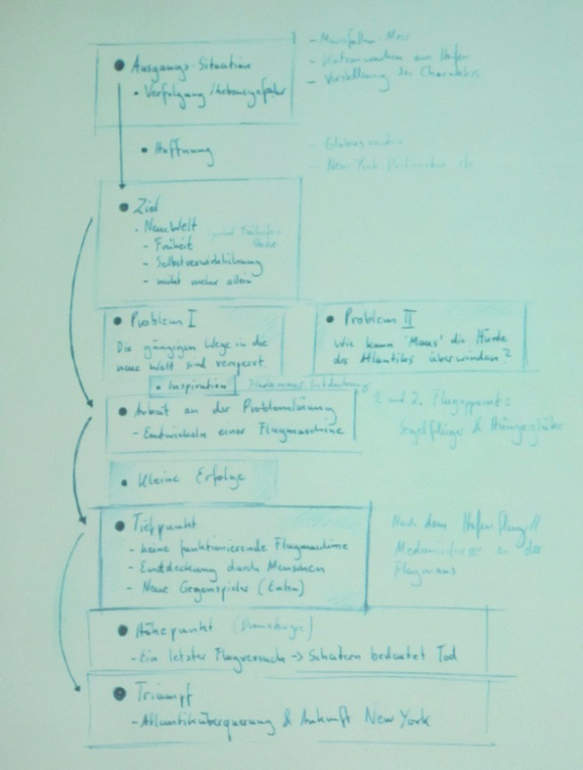 Ausgangs-Situation
- Verfolgung / Lebensgefahr
- Mausefallen
- Katzen am Hafen
- Vorstellung des Charakters
Hoffnung
- New York
Ziel
- Neue Welt
- Freiheit
- Selbstverwirklichung
- nicht mehr allein
Problem I
Die gängigen Wege in die
neue Welt sind versperrt.
Problem II
Wie kann 'Maus' die Hürde
des Atlantiks überwinden?
Inspiration
Fledermaus Entdeckung
Arbeit an der Problemlösung
- Entwickeln einer Flugmaschine
1. und 2. Flugapparat:
Segelflieger & Hängegleiter
Kleine Erfolge
Tiefpunkt
- keine funktionierende Flugmaschine
- Entdeckung durch Menschen
- Neue Gegenspieler (Eulen)
Nach dem Hafen
der
Flugmaus
Höhepunkt (Dramaturgie)
- Ein letzter Flugversuch -> Scheitern bedeutet Tod
Triumpf
- Atlantiküberquerung & Ankunft New York